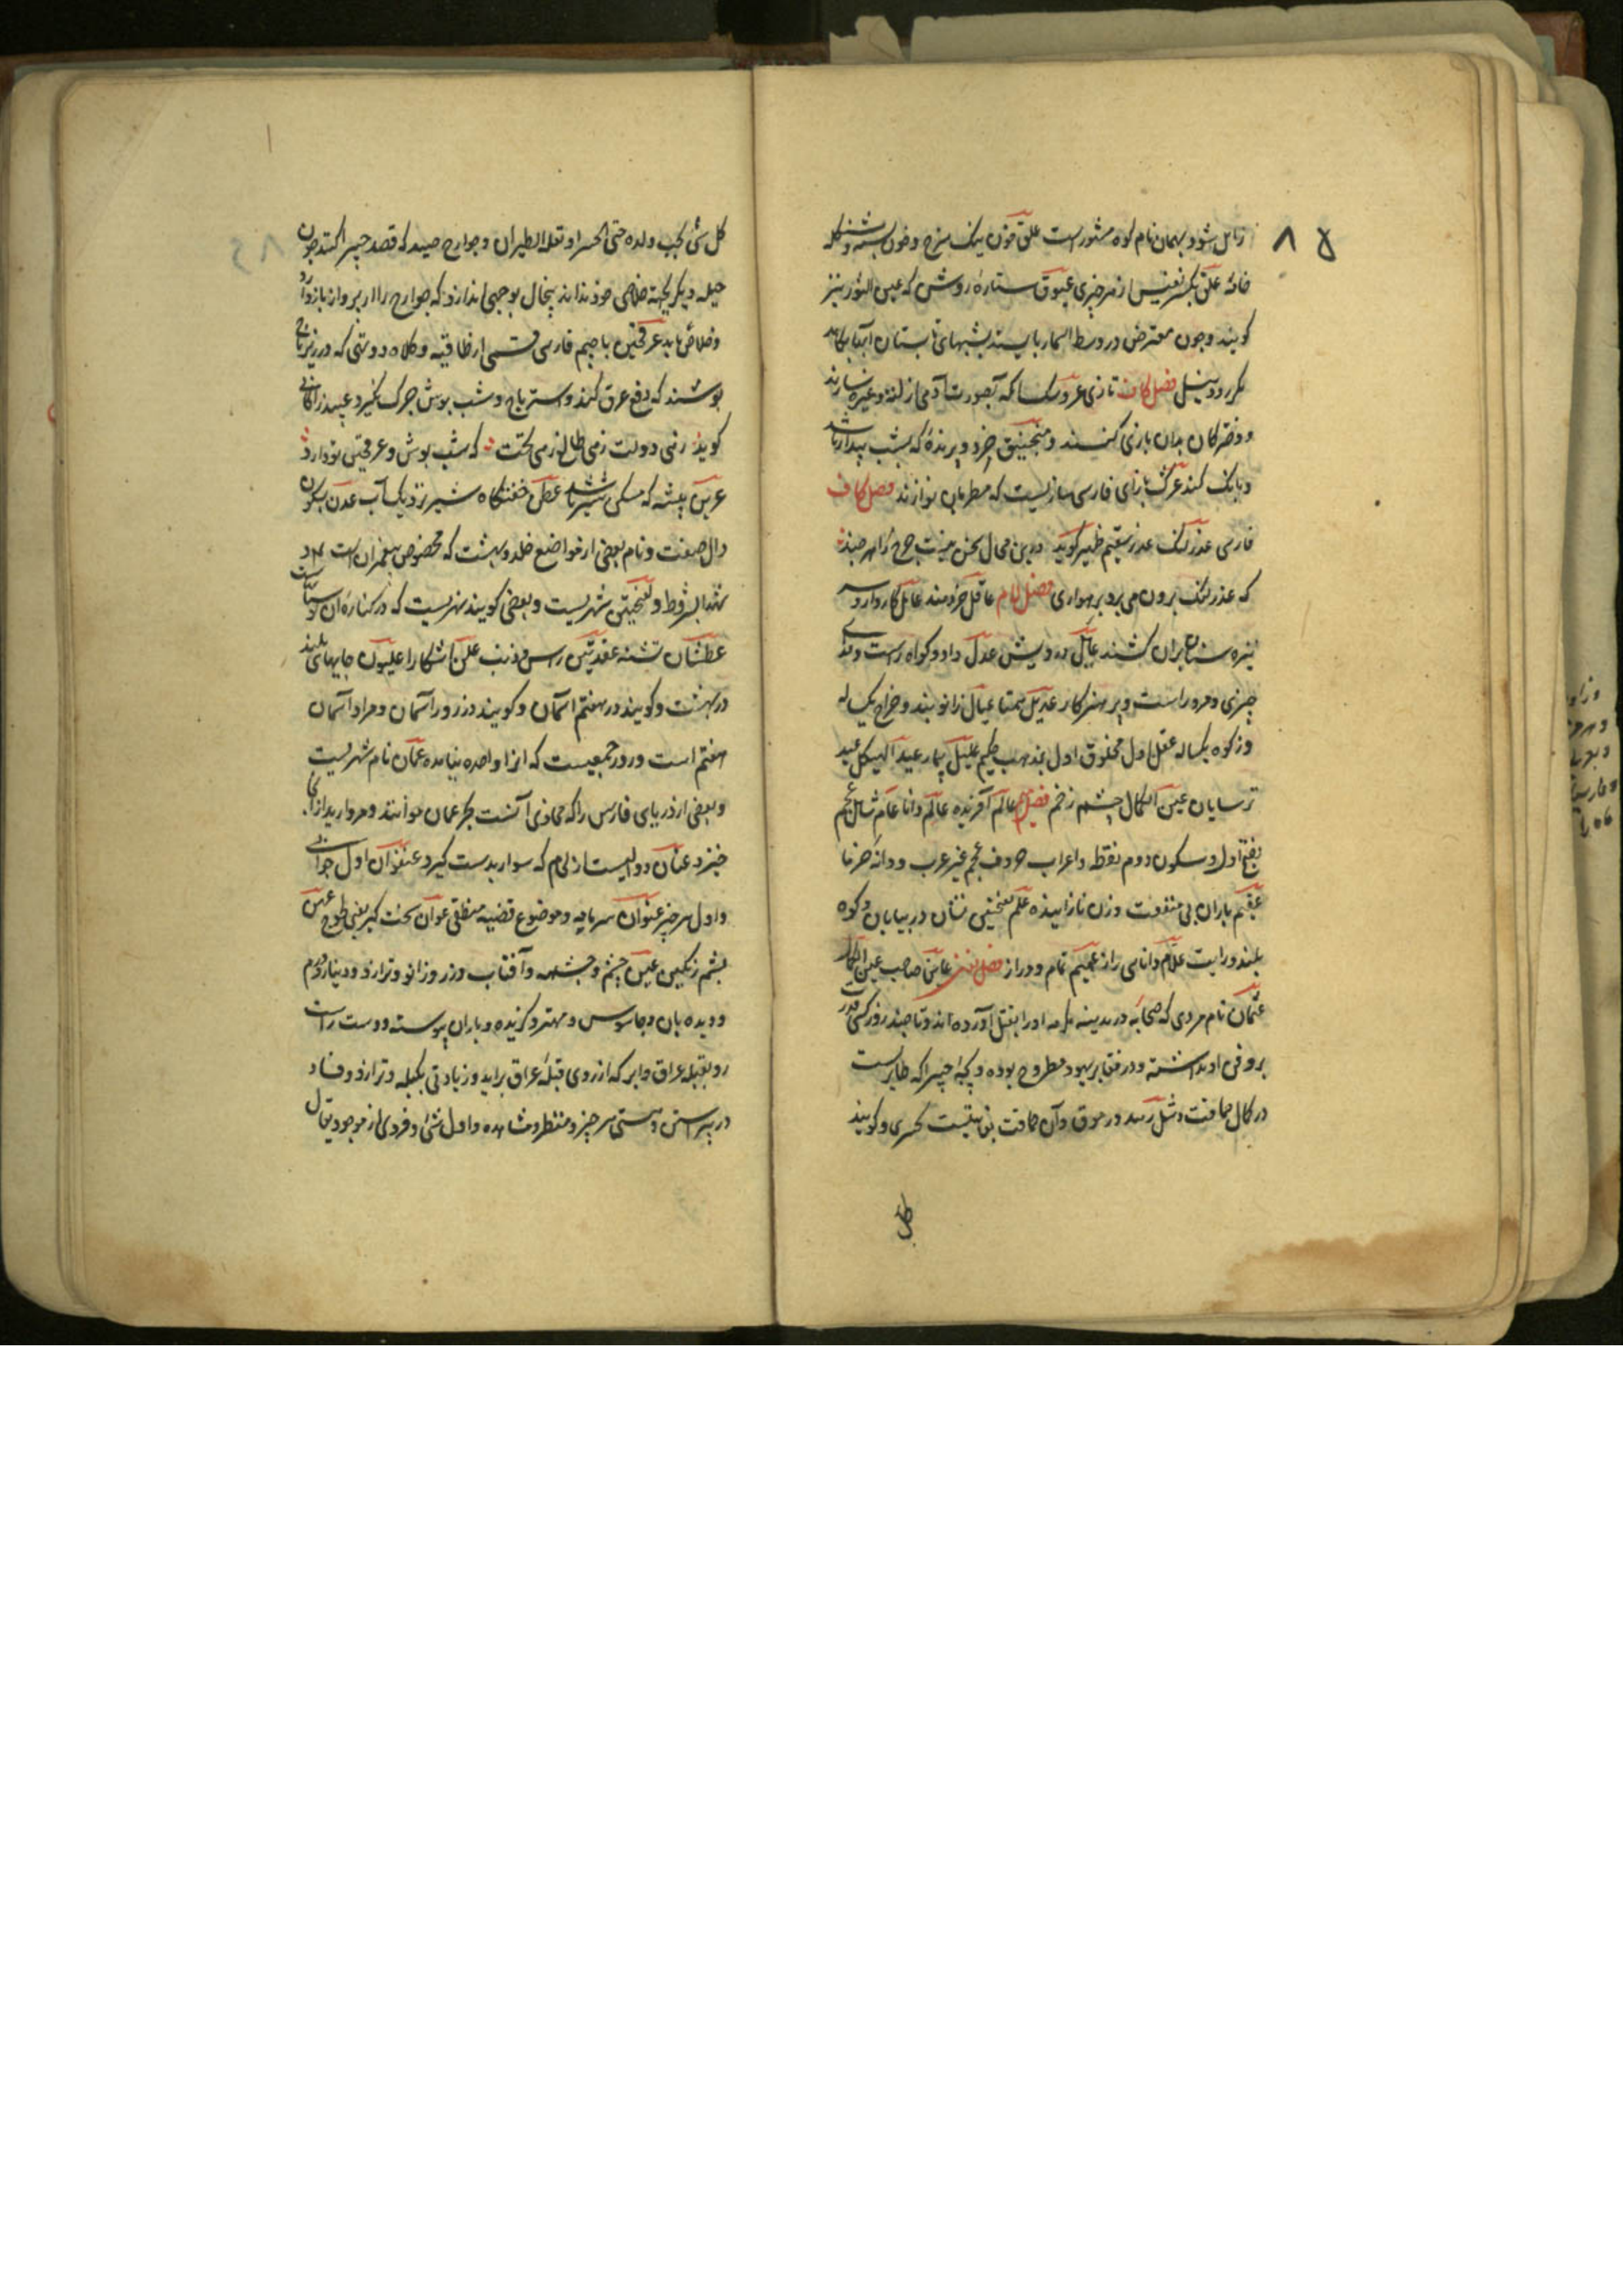 ۸۵
زایل شود و بهمان نام کوه مشهور است علق خون نیک سرخ و خون بسته و
خانه علق بکسر نفیس از هر چیزی عیوق ستارهٔ روشن که عین الثور نیز
کویند و چون معترض در وسط السما بایستد بشبهای تابستان آب
مکرر و دنیل فصل کاف تازی عروسک که بصورت آدمی از لته و غیره سازند
و دخترکان بدان بازی کنند و منجنیق خرد و پرندهٔ که بشب بیدار باشد
و بانک کند عزک با زای فارسی سازیست که مطربان نوازند فصل کاف
فارسی عذرلنک عذر سقیم ظهیر کوید درین محال سخن نیست
که عذر لنک برون می برد برهواری فصل لام عاقل خردمند عامل کاردار و سر
نیزه سنان بران کشند عایل درویش عدل داد و کواه راست و
چیزی و مرد راست و پر هنرکار عدیل همتا عیال زانوبند و خراج یکساله
و زکوه یکساله عقل اول مخلوق اول بمذهب حکیم علیل بیمار عید الهیکل عید
ترسایان عین الکمال چشم زخم فصل میم عالم آفریننده عالم دانا عام شامل عجم
بفتح اول و سکون دوم نقطه و اعراب حروف عجم غیر عرب و دانه خرما
عقیم باران بی منفعت و زن نازاینده علم بفتحتین نشان در بیابان و کوه
بلند و رایت علام دانای راز عمیم تمام و دراز فصل نون عاین صاحب عین الکمال
عثمان نام مردی که صحابه در مدینه مکرمه او را بقتل آورده اند و تا چند روز کسی
بر دفن او نداشته و در مقابر یهود مطروح بوده و بچهٔ چیرا که طایر است
در کمال حماقت و مثل زنند در موق و آن حماقت بغایتیست کبری و کویند
کل
کل شئ یحب ولده حتی الحبرا و تعله الطیران و جوارح صید که قصد چیرا کنند چون
حیله دیکر بجهة خلاصی خود نداند پنجال بوجهی اندازد که جوارح را از پرواز باز دارد
و خلاص یابد عرقچین با جیم فارسی قسمی از طاقیه و کلاه دوتهی که در زیر تاج
پوشند که دفع عرق کند و استر تاج و شب پوش چرک نکیرد عبید زاکانی
کوید زهی دولت زهی طالع زهی بخت که شب پوش و عرقچین تو دارد
عرین بیشه که مسکن شیر باشد عطن خفتنکاه شیر نزدیک آب عدن بسکون
دال صفت و نام بعضی از مواضع خلد و بهشت که مخصوص پیغمبران است و
شهدا بشروط و بفتحتین شهریست و بعضی کویند نهریست که در کناره آن
عطشان تشنه عقدتین رس و ذنب علن آشکارا علیون جایهای بلند
در بهشت و کویند در هفتم آسمان و کویند در زیر آسمان و مراد آسمان
هفتم است و رود جمعیست که آنرا واحده نیامده عمان نام شهریست
و بعضی از دریای فارس را که محاذی آنست بحر عمان خوانند و مروارید از آنجا
خیزد عنان دوالیست از لجام که سوار بدست کیرد عنفوان اول جوانی
و اول هر چیز عنوان سرنامه و موضوع قضیه منطقی عوان سخت کیر یعنی طوح عهن
پشم رنکین عین چشم و چشمه و آفتاب و زر و زانو و ترازو و دینار و درم
و دیده بان و جاسوس و مهتر و کزیده و باران پیوسته و دست راست
رو بقبله عراق و ابر که از روی قبلهٔ عراق براید و زیادتی یکپله ترازو و فساد
در پیراستن و هستی هر چیز و منتظر و مشاهده و اول شئ و فردی از موجود یقال